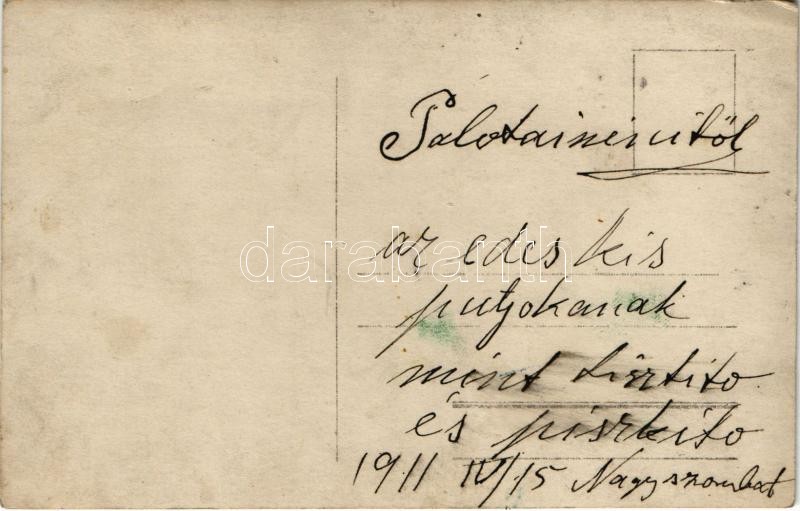 Palotainénitől
az edes kis
putyokanak
mint tisztito
és piszkito
1911 IV/15 Nagyszombat
darabanth